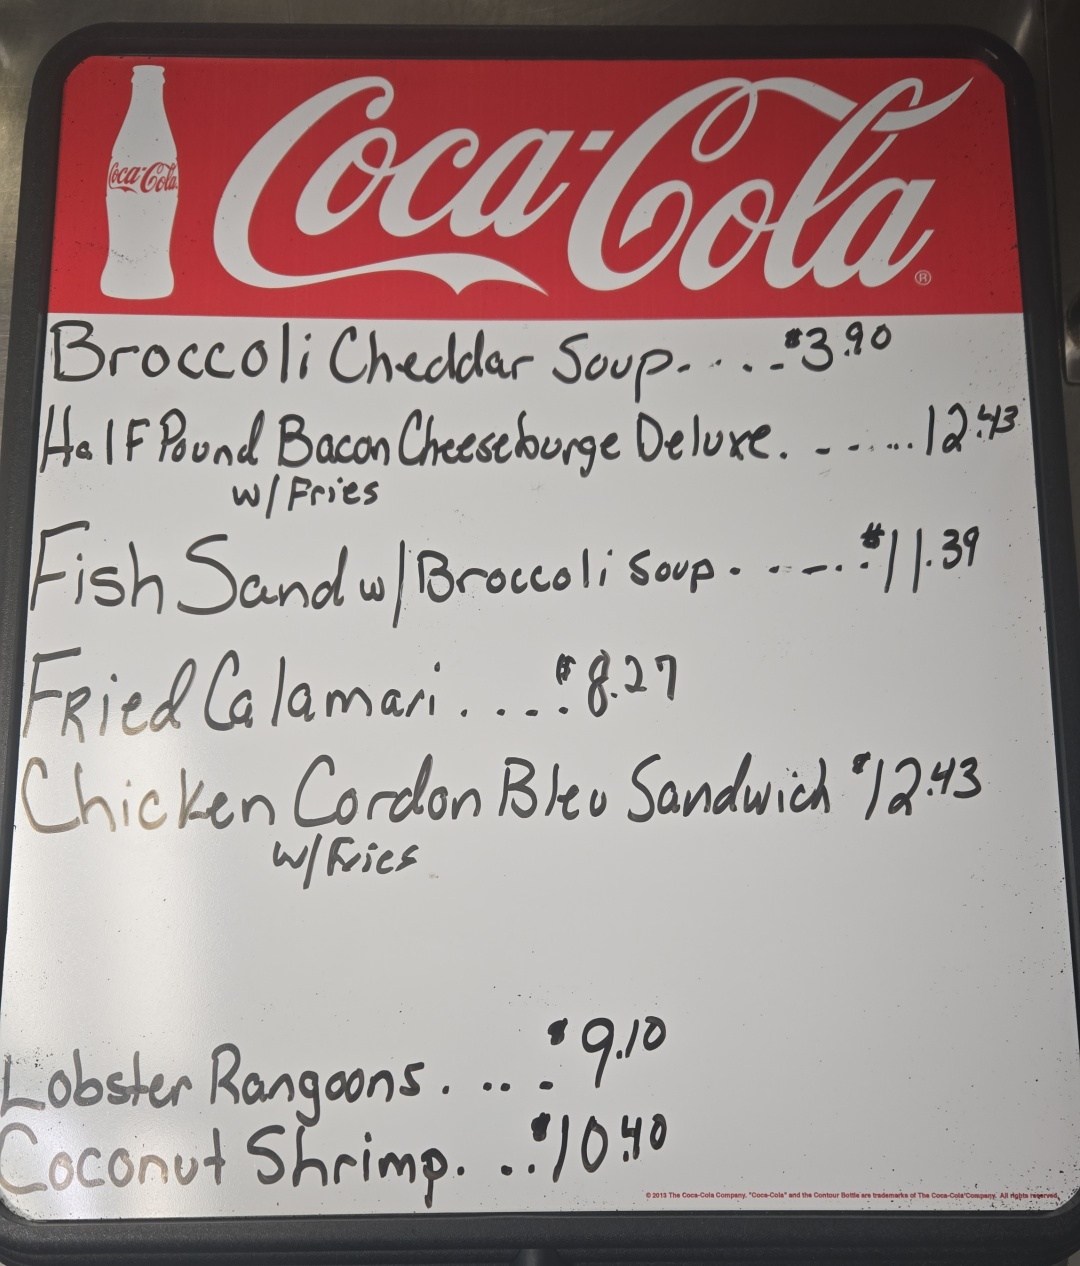 Coca-Cola
Coca-Cola®
Broccoli Cheddar Soup..... $3.90
Half Pound Bacon Cheeseburge Deluxe. ...... 12.43
w/Fries
Fish Sand w/Broccoli Soup....... $11.39
Fried Calamari..... $8.27
Chicken Cordon Bleu Sandwich $12.43
w/Fries
Lobster Rangoons.... $9.10
Coconut Shrimp.... $10.40
© 2013 The Coca-Cola Company. "Coca-Cola" and the Contour Bottle are trademarks of The Coca-Cola Company. All rights reserved.